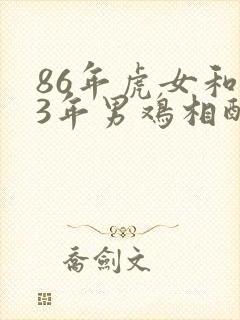 86年虎女和
3年男鸡相配
乔劍文